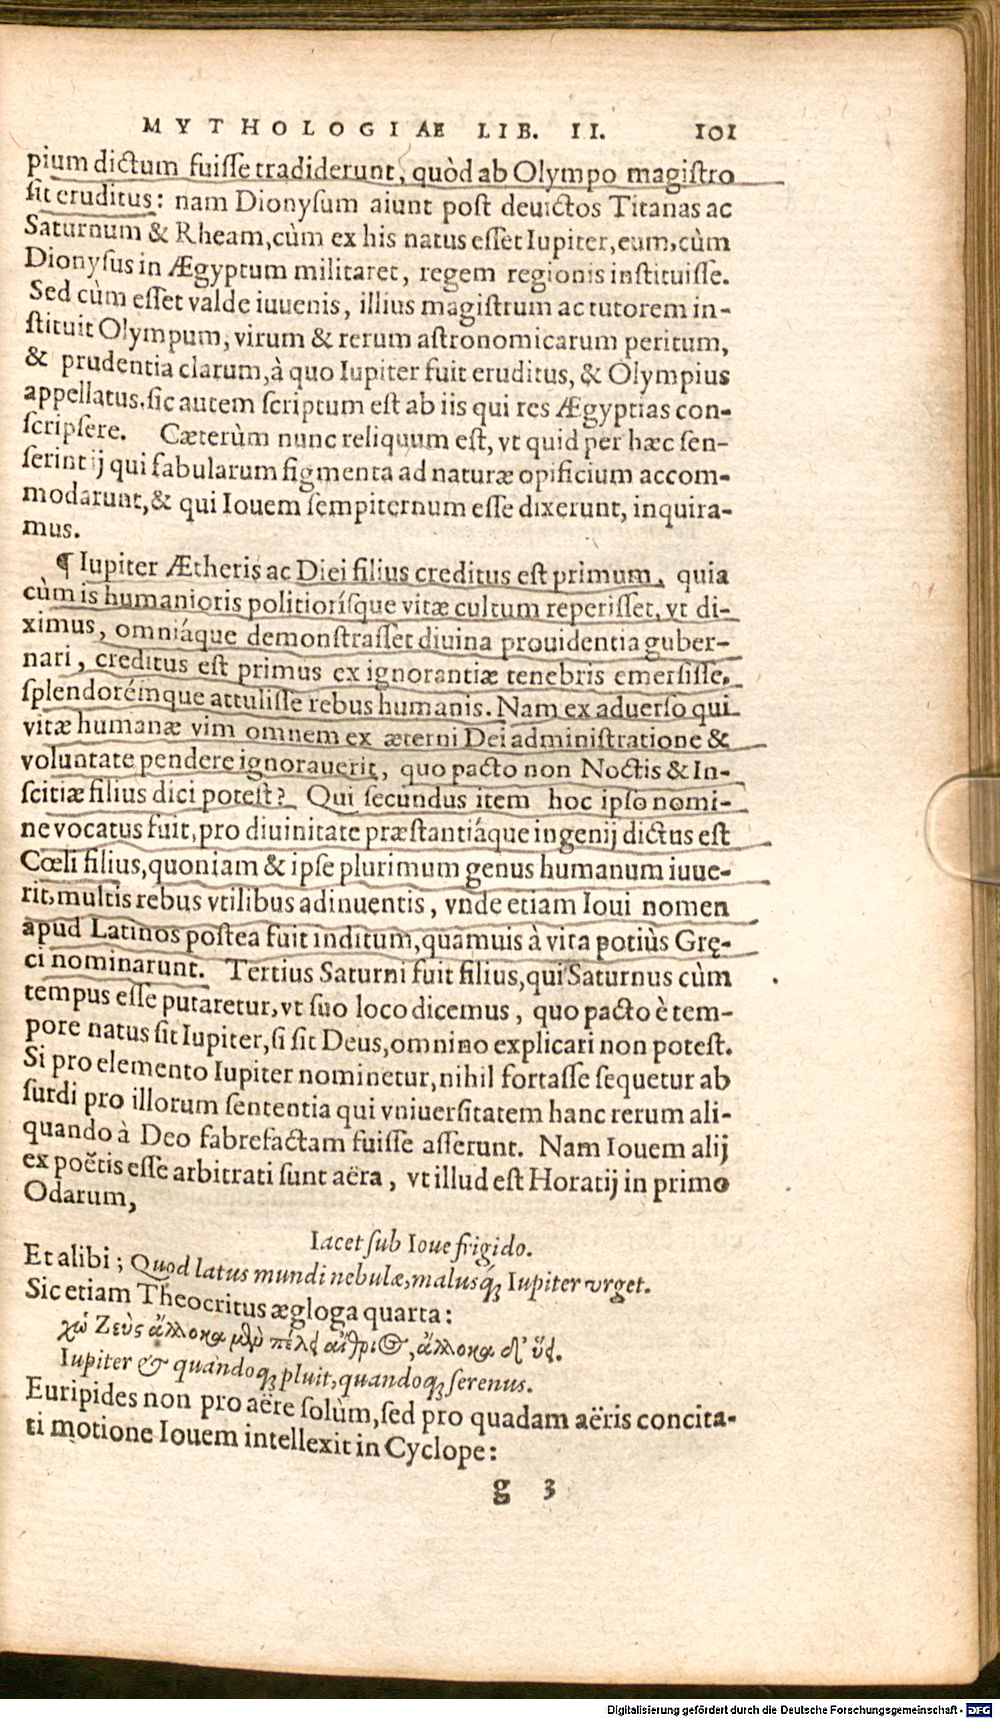 MYTHOLOGIAE LIB. II. 101
pium dictum fuiſſe tradiderunt, quòd ab Olympo magiſtro
ſit eruditus: nam Dionyſum aiunt poſt deuictos Titanas ac
Saturnum & Rheam, cùm ex his natus eſſet Iupiter, eum, cùm
Dionyſus in Ægyptum militaret, regem regionis inſtituiſſe.
Sed cùm eſſet valde iuuenis, illius magiſtrum ac tutorem in-
ſtituit Olympum, virum & rerum aſtronomicarum peritum,
& prudentia clarum, à quo Iupiter fuit eruditus, & Olympius
appellatus. ſic autem ſcriptum eſt ab iis qui res Ægyptias con-
ſcripſere. Cæterùm nunc reliquum eſt, vt quid per hæc ſen-
ſerint ij qui fabularum figmenta ad naturæ opificium accom-
modarunt, & qui Iouem ſempiternum eſſe dixerunt, inquira-
mus.
¶ Iupiter Ætheris ac Diei filius creditus eſt primum, quia
cùm is humanioris politioríſque vitæ cultum reperiſſet, vt di-
ximus, omniáque demonſtraſſet diuina prouidentia guber-
nari, creditus eſt primus ex ignorantiæ tenebris emerſiſſe,
ſplendorémque attuliſſe rebus humanis. Nam ex aduerſo qui
vitæ humanæ vim omnem ex æterni Dei adminiſtratione &
voluntate pendere ignorauerit, quo pacto non Noctis & In-
ſcitiæ filius dici poteſt? Qui ſecundus item hoc ipſo nomi-
ne vocatus fuit, pro diuinitate præſtantiáque ingenij dictus eſt
Cœli filius, quoniam & ipſe plurimum genus humanum iuue-
rit, multis rebus vtilibus adinuentis, vnde etiam Ioui nomen
apud Latinos poſtea fuit inditum, quamuis à vita potiùs Grę-
ci nominarunt. Tertius Saturni fuit filius, qui Saturnus cùm
tempus eſſe putaretur, vt ſuo loco dicemus, quo pacto è tem-
pore natus ſit Iupiter, ſi ſit Deus, omnino explicari non poteſt.
Si pro elemento Iupiter nominetur, nihil fortaſſe ſequetur ab
ſurdi pro illorum ſententia qui vniuerſitatem hanc rerum ali-
quando à Deo fabrefactam fuiſſe aſſerunt. Nam Iouem alij
ex poëtis eſſe arbitrati ſunt aëra, vt illud eſt Horatij in primo
Odarum,
Iacet ſub Ioue frigido.
Et alibi; Quod latus mundi nebulæ, malusq́; Iupiter vrget.
Sic etiam Theocritus ægloga quarta:
χὠ Ζεὺς ἄλλοκα μὲν πέλει αἴθριος, ἄλλοκα δ' ὕει.
Iupiter & quandoq; pluit, quandoq; ſerenus.
Euripides non pro aëre ſolùm, ſed pro quadam aëris concita-
ti motione Iouem intellexit in Cyclope:
g 3
Digitalisierung gefördert durch die Deutsche Forschungsgemeinschaft - DFG